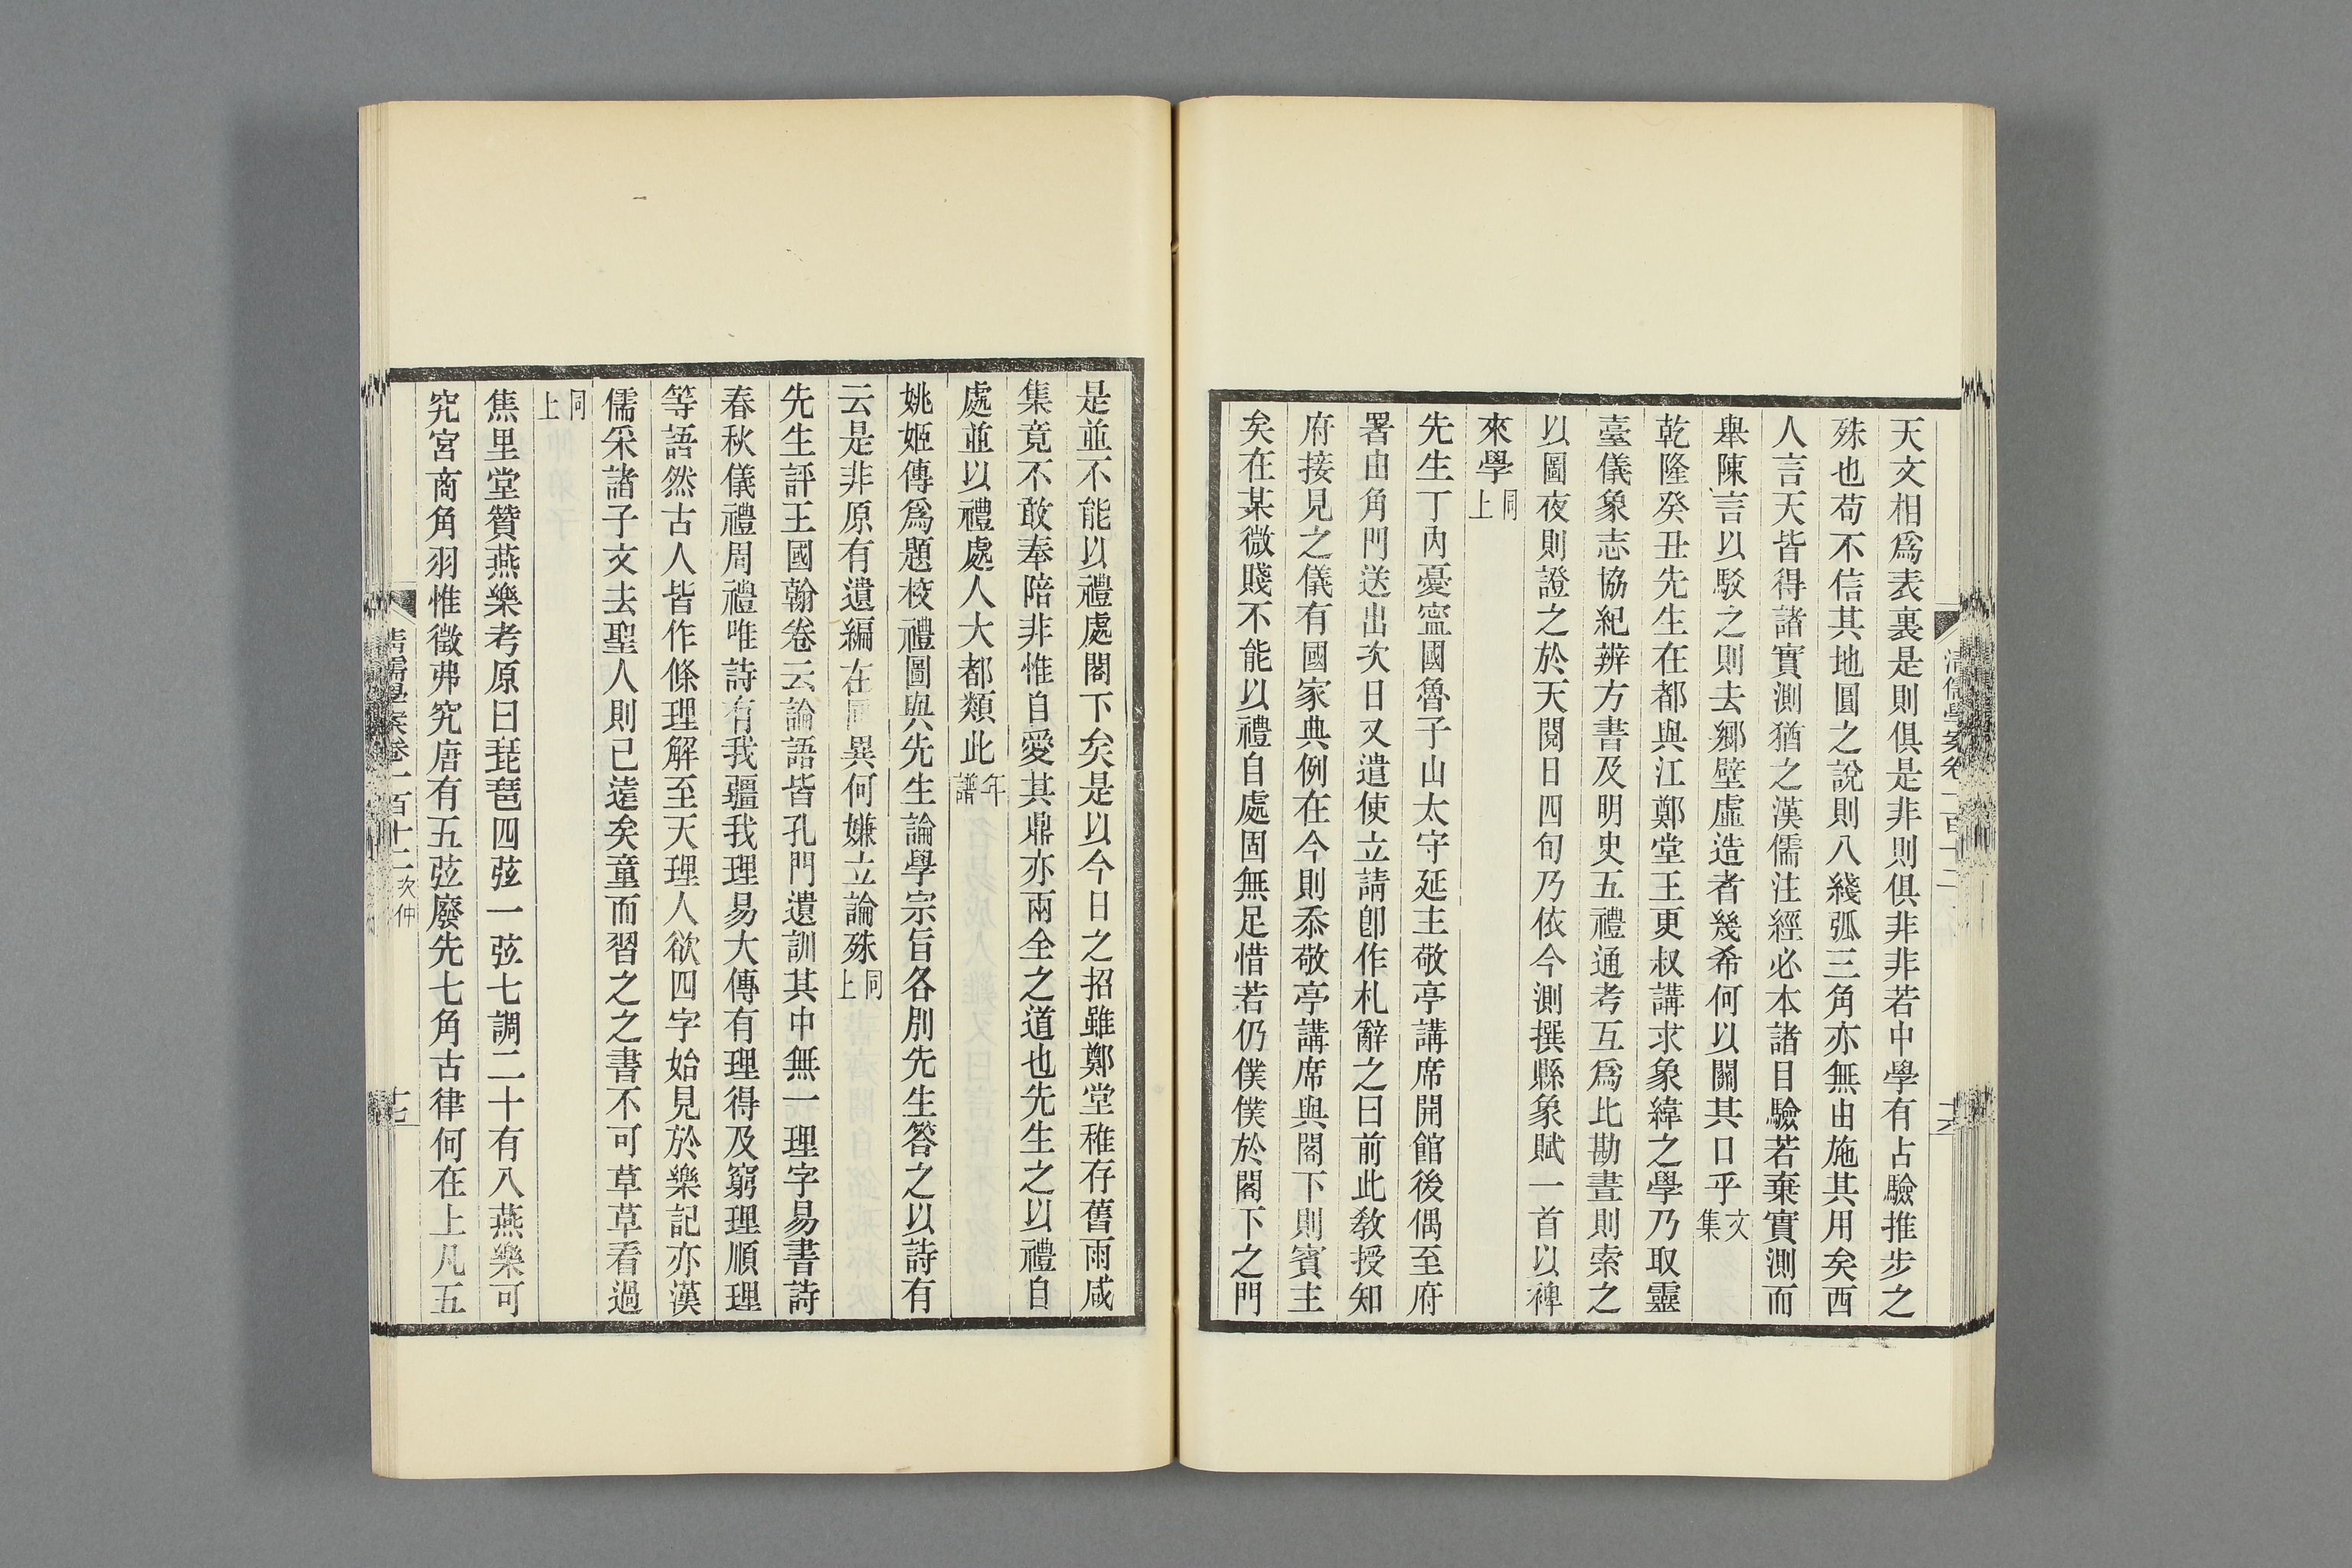 天文相爲表裏是則俱是非則俱非非若中學有占驗推步之
殊也苟不信其地圓之說則八綫弧三角亦無由施其用矣西
人言天皆得諸實測猶之漢儒注經必本諸目驗若棄實測而
舉陳言以駁之則去鄉壁虛造者幾希何以關其口乎文集
乾隆癸丑先生在都與江鄭堂王更叔講求象緯之學乃取靈
臺儀象志協紀辨方書及明史五禮通考互爲比勘晝則索之
以圖夜則證之於天閱日四旬乃依今測撰縣象賦一首以裨
來學同上
先生丁內憂寧國魯子山太守延主敬亭講席開館後偶至府
署由角門送出次日又遣使立請卽作札辭之曰前此敎授知
府接見之儀有國家典例在今則忝敬亭講席與閣下則賓主
矣在某微賤不能以禮自處固無足惜若仍僕僕於閣下之門
清儒學案卷一百十二
十六
是並不能以禮處閣下矣是以今日之招雖鄭堂稚存舊雨咸
集竟不敢奉陪非惟自愛其鼎亦兩全之道也先生之以禮自
處並以禮處人大都類此年譜
姚姬傳爲題校禮圖與先生論學宗旨各別先生答之以詩有
云是非原有遺編在同異何嫌立論殊同上
先生評王國翰卷云論語皆孔門遺訓其中無一理字易書詩
春秋儀禮周禮唯詩有我疆我理易大傳有理得及窮理順理
等語然古人皆作條理解至天理人欲四字始見於樂記亦漢
儒采諸子文去聖人則已遠矣童而習之之書不可草草看過
同上
焦里堂贊燕樂考原曰琵琶四弦一弦七調二十有八燕樂可
究宮商角羽惟徵弗究唐有五弦廢先七角古律何在上凡五
清儒學案卷一百十二 次仲
十七